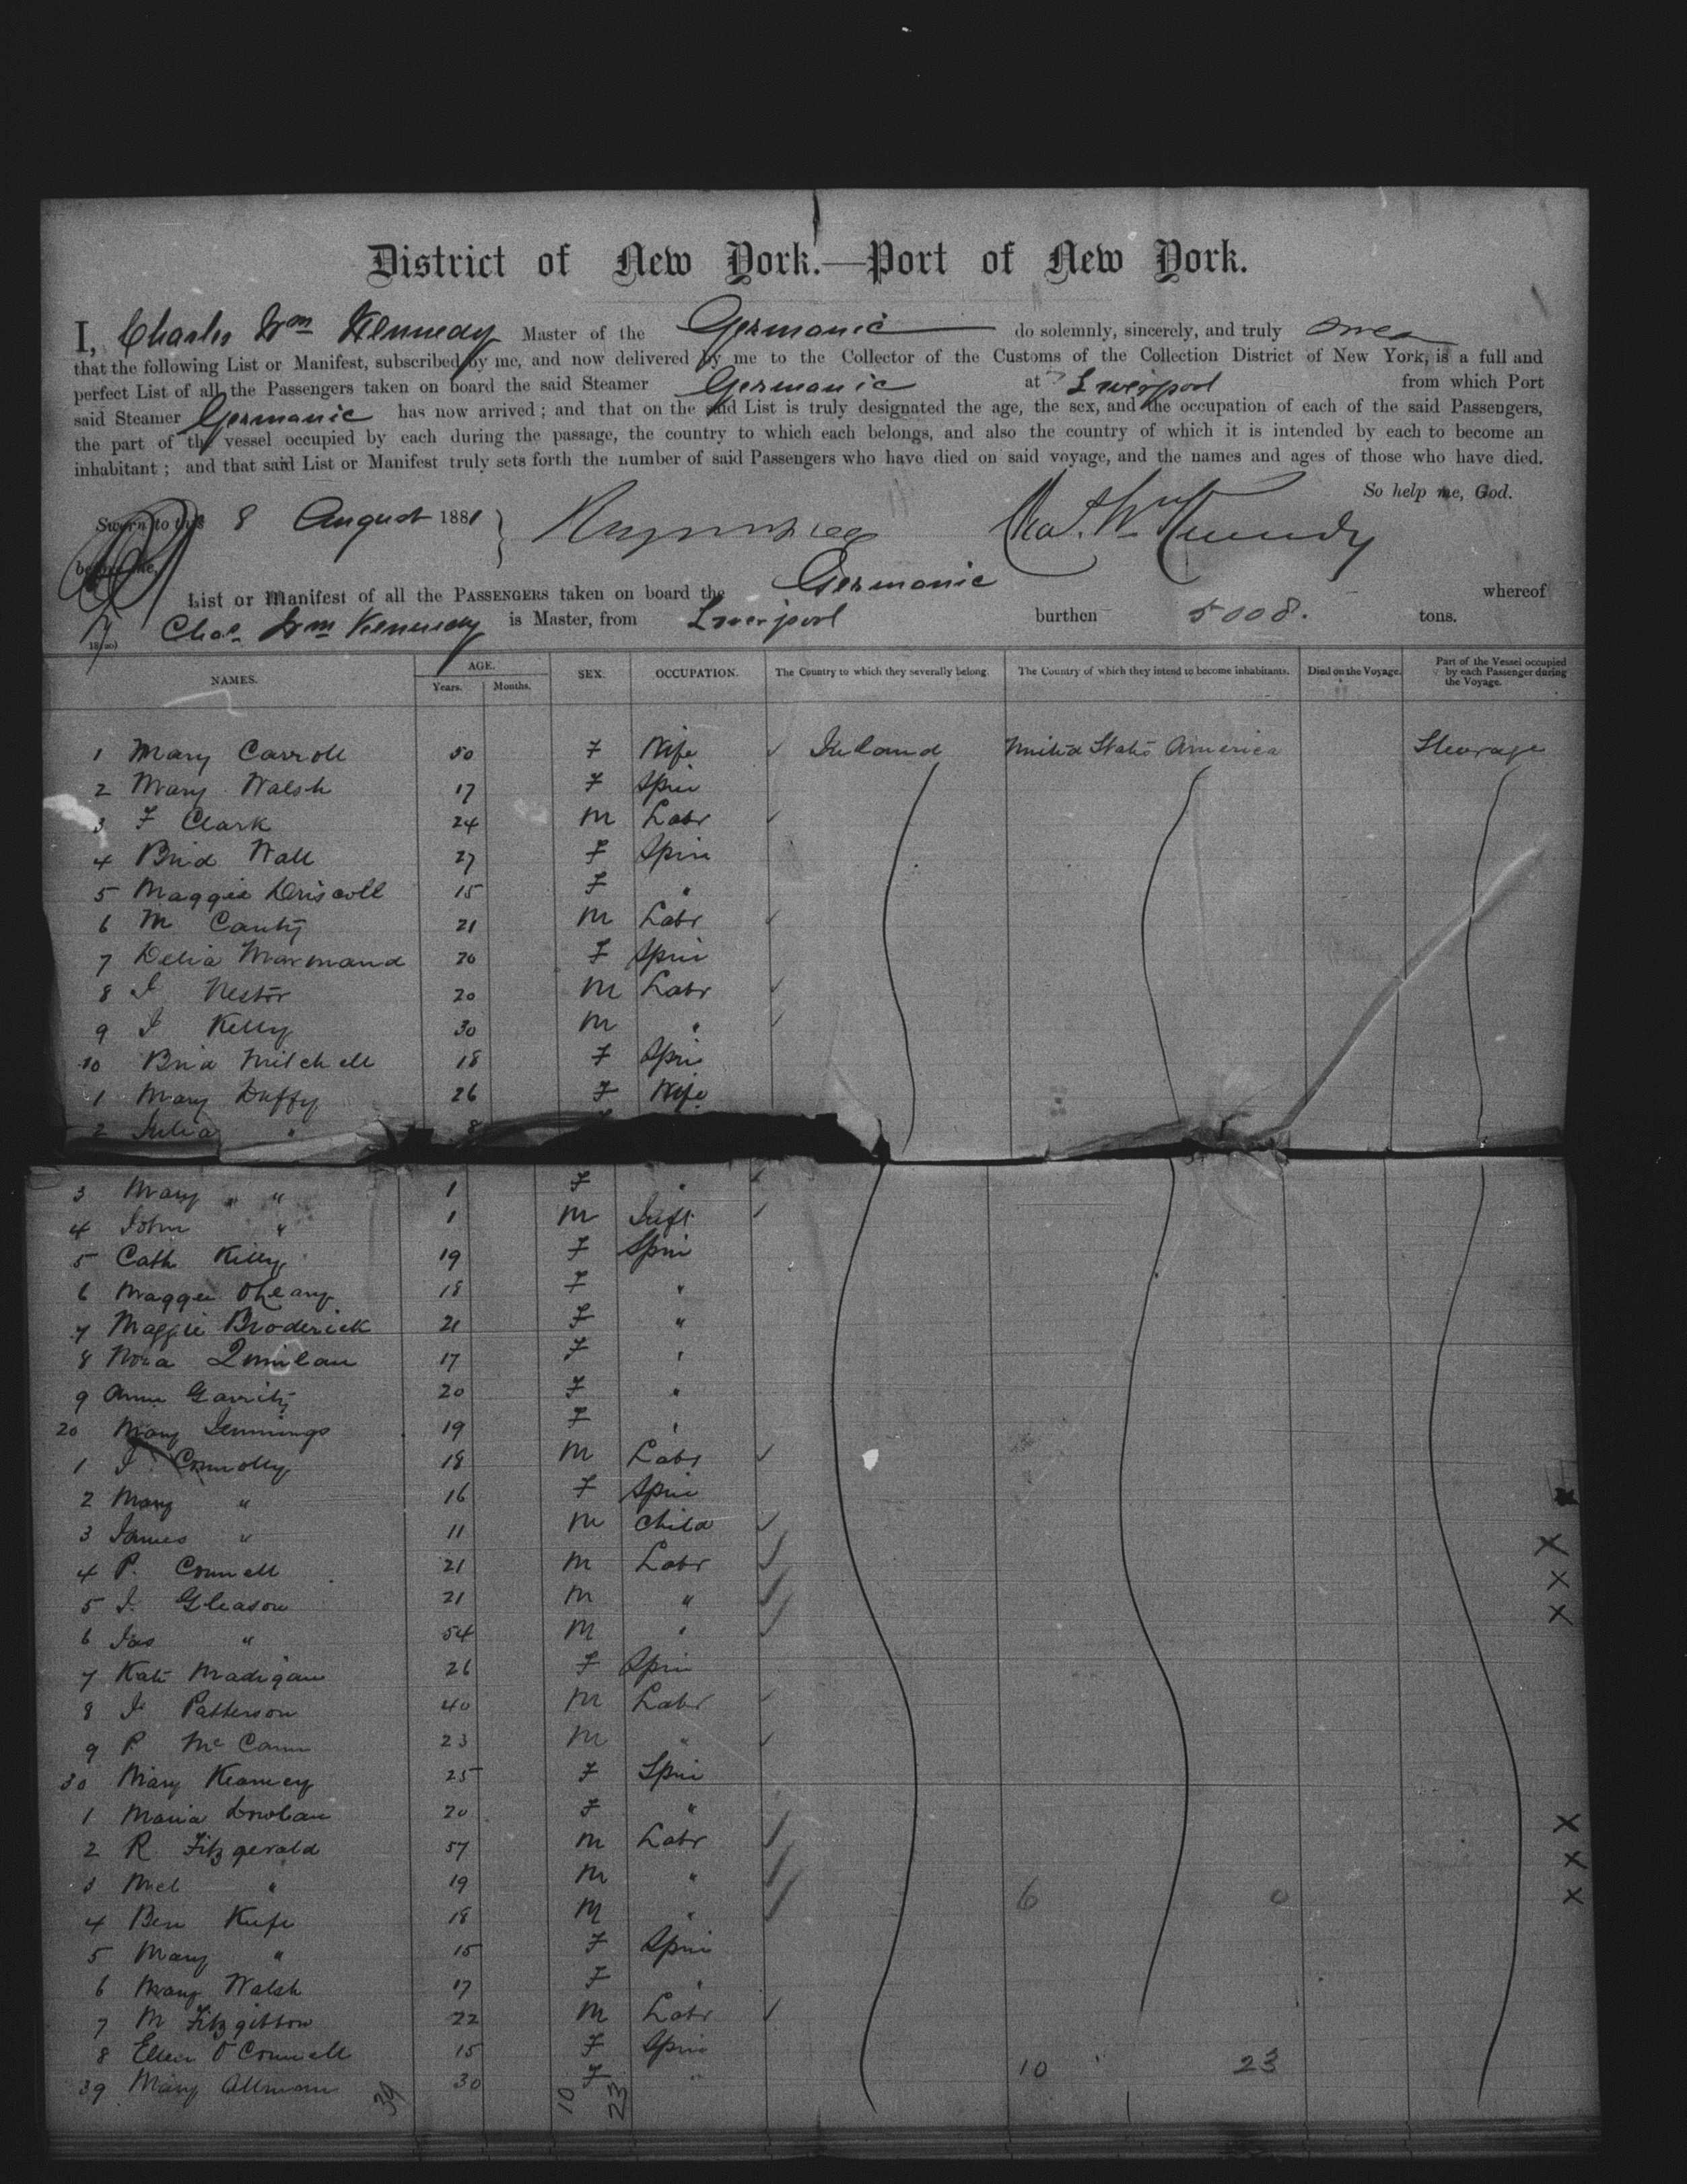 District of New York.—Port of New York.
I, Charles Wm Kennedy Master of the Germanic do solemnly, sincerely, and truly swear
that the following List or Manifest, subscribed by me, and now delivered by me to the Collector of the Customs of the Collection District of New York, is a full and
perfect List of all the Passengers taken on board the said Steamer Germanic at Liverpool from which Port
said Steamer Germanic has now arrived; and that on the said List is truly designated the age, the sex, and the occupation of each of the said Passengers,
the part of the vessel occupied by each during the passage, the country to which each belongs, and also the country of which it is intended by each to become an
inhabitant; and that said List or Manifest truly sets forth the number of said Passengers who have died on said voyage, and the names and ages of those who have died.
So help me, God.
Sworn to this 8 August 1881
Chas. Wm Kennedy
before me,
List or Manifest of all the PASSENGERS taken on board the Germanic whereof
Chas. Wm Kennedy is Master, from Liverpool burthen 5008. tons.
NAMES. AGE. Years. Months. SEX. OCCUPATION. The Country to which they severally belong. The Country of which they intend to become inhabitants. Died on the Voyage. Part of the Vessel occupied by each Passenger during the Voyage.
1 Mary Carroll 50 F Wife Ireland United States America Steerage
2 Mary Walsh 17 F Spin
3 F Clark 24 M Labr
4 Brid Wall 27 F Spin
5 Maggie Driscoll 15 F "
6 M Canty 21 M Labr
7 Delia Marmand 20 F Spin
8 J Nestor 20 M Labr
9 J Kelly 30 M "
10 Brid Mitchell 18 F Spin
1 Mary Duffy 26 F Wife
2 Julia " 8
3 Mary " " 1 F "
4 John " 1 M Inft
5 Cath Kelly 19 F Spin
6 Maggie OLeary 18 F "
7 Maggie Broderick 21 F "
8 Nora Quinlan 17 F "
9 Anne Garrity 20 F "
20 Mary Jennings 19 F "
1 J Connolly 18 M Labr
2 Mary " 16 F Spin
3 James " 11 M Child
4 P. Connell 21 M Labr
5 J. Gleason 21 M "
6 Jas " 54 M "
7 Kate Madigan 26 F Spin
8 J Patterson 40 M Labr
9 P McCann 23 M "
30 Mary Kearney 25 F Spin
1 Maria 20 F "
2 R Fitzgerald 57 M Labr
3 Mich " 19 M "
4 Ben Keefe 18 M " 6 0
5 Mary " 15 F Spin
6 Mary Walsh 17 F "
7 M Fitzgibbon 22 M Labr
8 Ellen O'Connell 15 F Spin 10 23
39 Mary Allman 30 F "
39 10 23